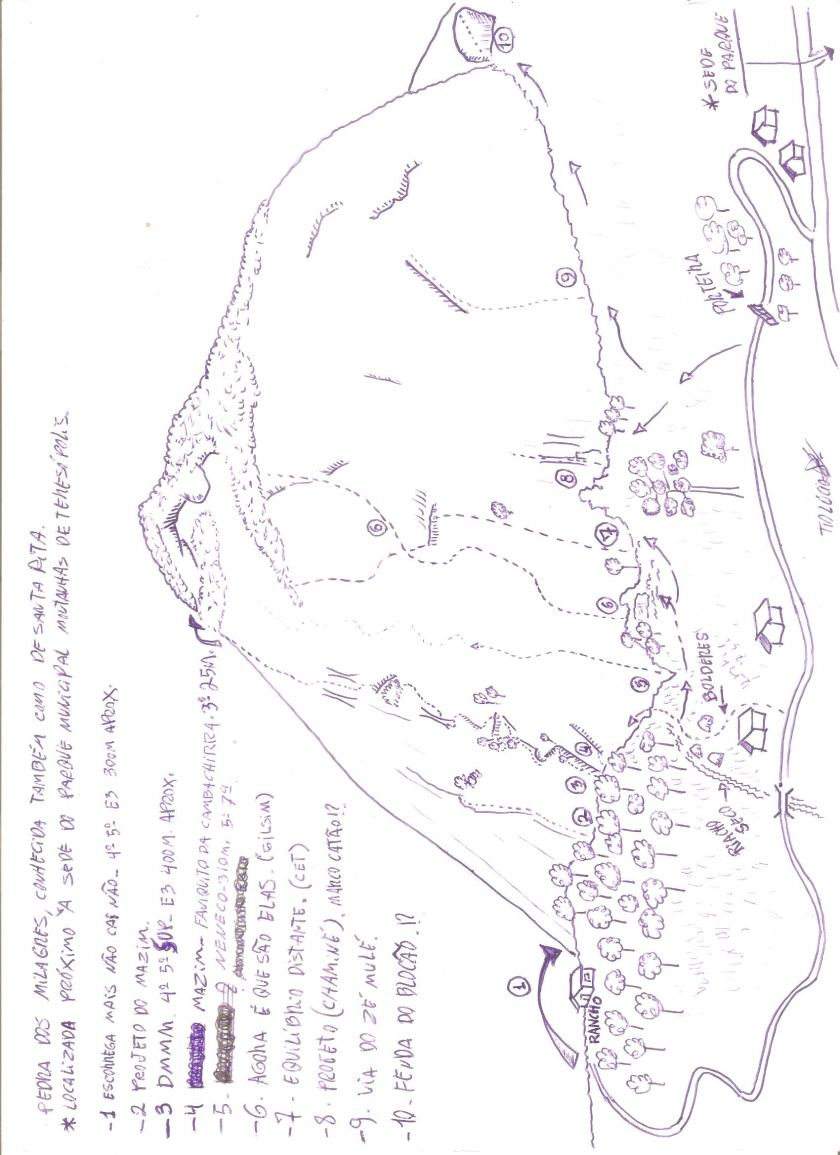 PEDRA DOS MILAGRES, CONHECIDA TAMBÉM COMO DE SANTA RITA.
* LOCALIZADA PRÓXIMO A SEDE DO PARQUE MUNICIPAL MONTANHAS DE TERESÓPOLIS.
-1 ESCORREGA MAIS NÃO CAI NÃO_ 4º 5º E3 300M APROX.
-2 PROJETO DO MAZIM.
-3 DMMM. 4º 5º SUP_ E3 400M. APROX.
-4 MAZIM_ FANIQUITO DA CAMBACHIRRA. 3º 25M.
-5. NENECO-310M. 5º 7º.
-6. AGORA É QUE SÃO ELAS. (GILSIM)
-7 - EQUILÍBRIO DISTANTE. (CET)
-8. PROJETO (CHAMINÉ). MARCO CATÃO!?
-9. VIA DO ZÉ MULÉ.
-10. FENDA DO BLOCÃO.!?
10
* SEDE
DO PARQUE
PORTEIRA
9
8
6
7
6
5
4
3
2
1
BOLDERES
RIACHO
SECO
RANCHO